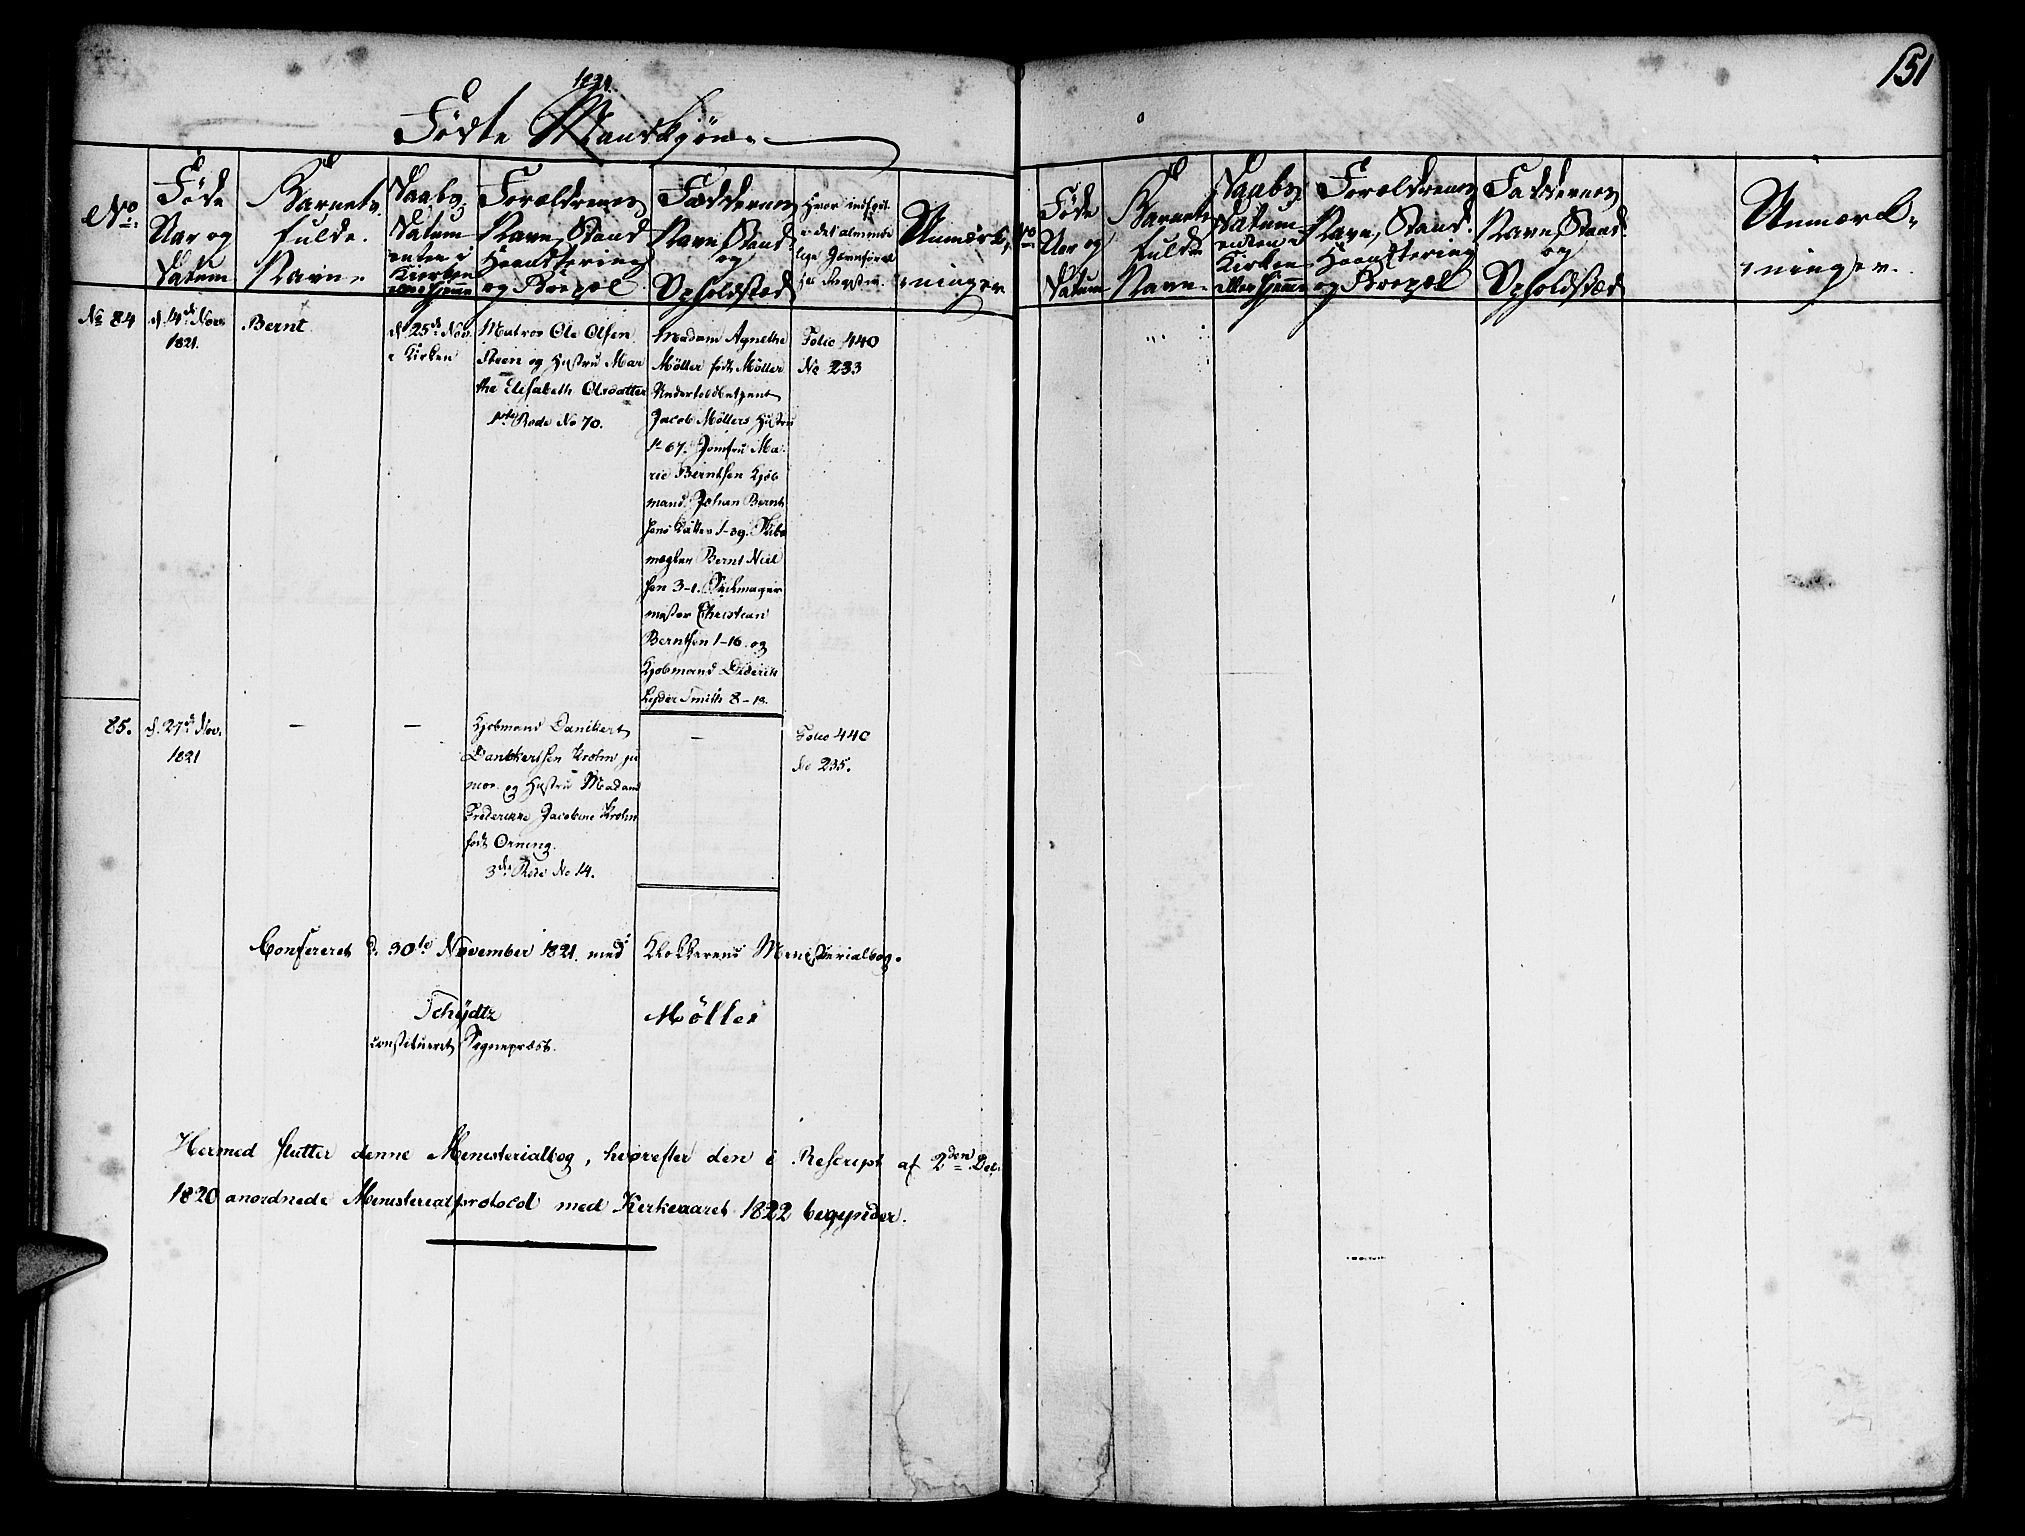 151
1821.
Födte Mandkjön.
No.
Föde
Aar og
Datum
Barnets
fulde
Navn
Daabs
Datum
enten i
Kirken
eller hjemme
Forældrenes
Navn, Stand
Haandtering
og Boepæl
Faddernes
Navn, Stand
og
Opholdsted
Hvor indført
i det alminde
lige Jevnførel
ses Register
Anmærk
ninger
No
Föde
Aar og
Datum
Barnets
fulde
Navn
Daabs
Datum
enten i
Kirken
eller hjemme
Forældrenes
Navn, Stand
Haandtering
og Boepæl
Faddernes
Navn, Stand
og
Opholdsted
Anmærk
ninger
No 84
d. 14de Nov.
1821.
Bernt
d. 25de Nov.
i Kirken
Matros Ole Olsen
Steen og Hustru Mar
the Elisabeth Olsdatter
1ste Rode No 70.
Madam Agnethe
Möller född Möller
Undertoldbetjent
Jacob Möllers Hustru
1-67. Jomfru Ma
rie Berntsen Kjöb
mand Johan Bernt
sens Datter 1-39. Skibs
mægler Bernt Niel
sen 3-1. Skomager
mester Christian
Berntsen 1-16. og
Kjöbmand Diderich
Lyder Smith 8-13.
Folio 440
No 233
85.
d. 27de Nov.
1821
-
-
Kjöbmand Danckert
Danckertsen Krohn ju
nior og Hustru Madam
Frederikke Jacobine Krohn
föd Orning.
3de Rode No 14.
-
Folio 440
No 235.
Confereret d. 30te November 1821. med Klokkerens Ministerialbog.
Schÿdtz
Möller
constitueret Sognepræst.
Hermed slutter denne Ministerialbog, hvorefter den i Rescript af 2den Dec.
1820 anordnede Ministerialprotocol med Kirkeaaret 1822 begynder.